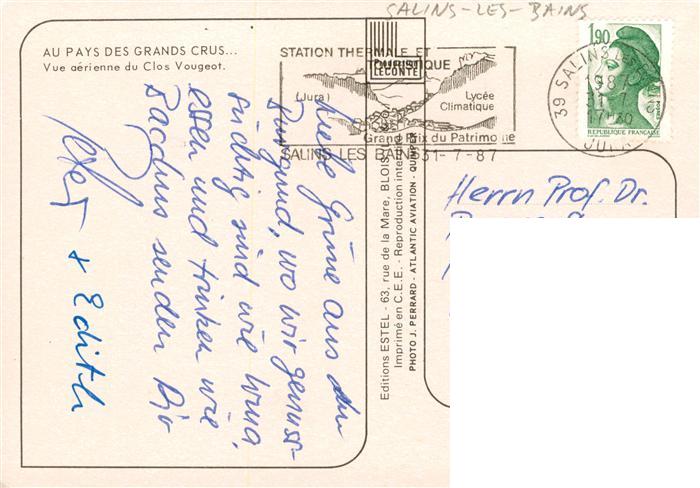 SALINS-LES-BAINS
AU PAYS DES GRANDS CRUS...
Vue aérienne du Clos Vougeot.
STATION THERMALE ET
TOURISTIQUE
(Jura)
Lycée
Climatique
Grand Prix du Patrimoine
SALINS LES BAINS 31-7-87
LECONTE
1,90
REPUBLIQUE FRANÇAISE
39 SALINS LES
17H30
JURA
Liebe Grüße aus
Burgund, wo wir genuss-
süchtig sind wie
essen und trinken wie
Bacchus senden
Peter
+ Edith
Editions ESTEL - 63, rue de la Mare, BLOIS
Imprimé en C.E.E. - Reproduction interdite
PHOTO J. PERRARD - ATLANTIC AVIATION - QUIMPER
Herrn Prof. Dr.